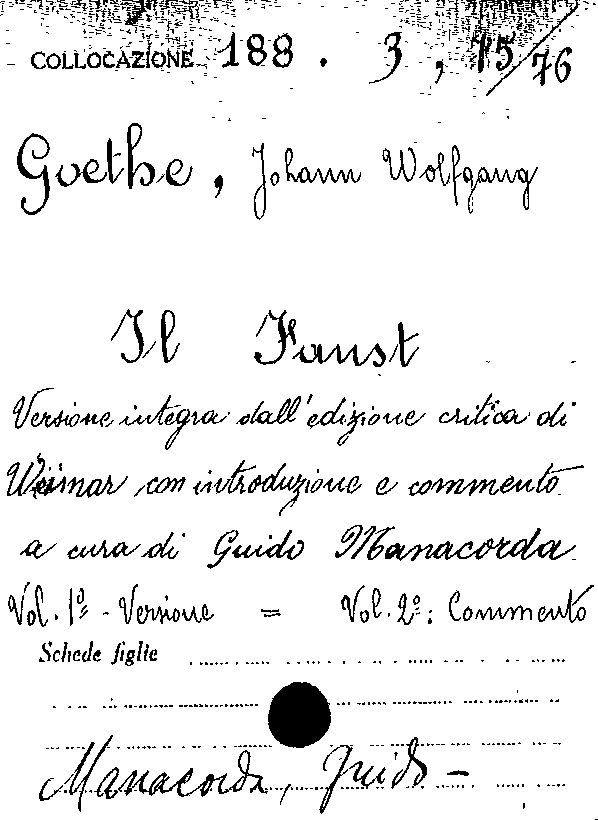 COLLOCAZIONE 188 . 3 , 75/76
Goethe, Johann Wolfgang
Il Faust
Versione integra dall'edizione critica di
Weimar con introduzione e commento
a cura di Guido Manacorda
Vol. 1º - Versione = Vol. 2º: Commento
Schede figlie
Manacorda, Guido -